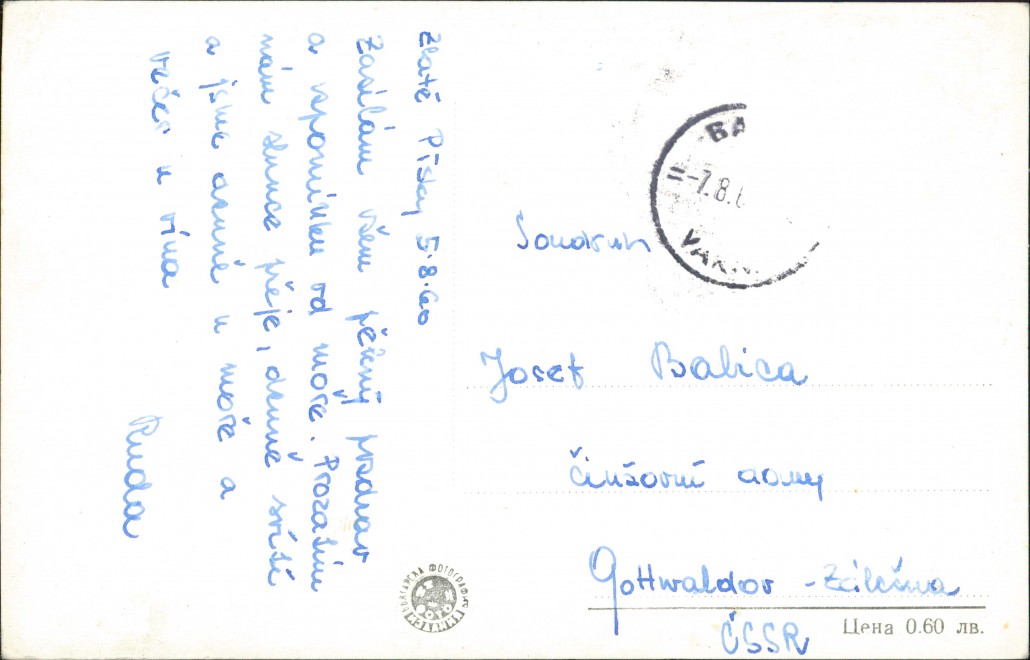 Zlaté Písky 5.8.60
Zasílám všem pěkný pozdrav
a vspomínku od moře. Prozatím
nám slunce přeje, denně svítí
a jsme denně u moře a
večer u vína
Ruda
BA
7.8.6
VAR
Soudruh
Josef Babica
činžovní domy
Gottwaldov - Zálešná
ČSSR
Цена 0.60 лв.